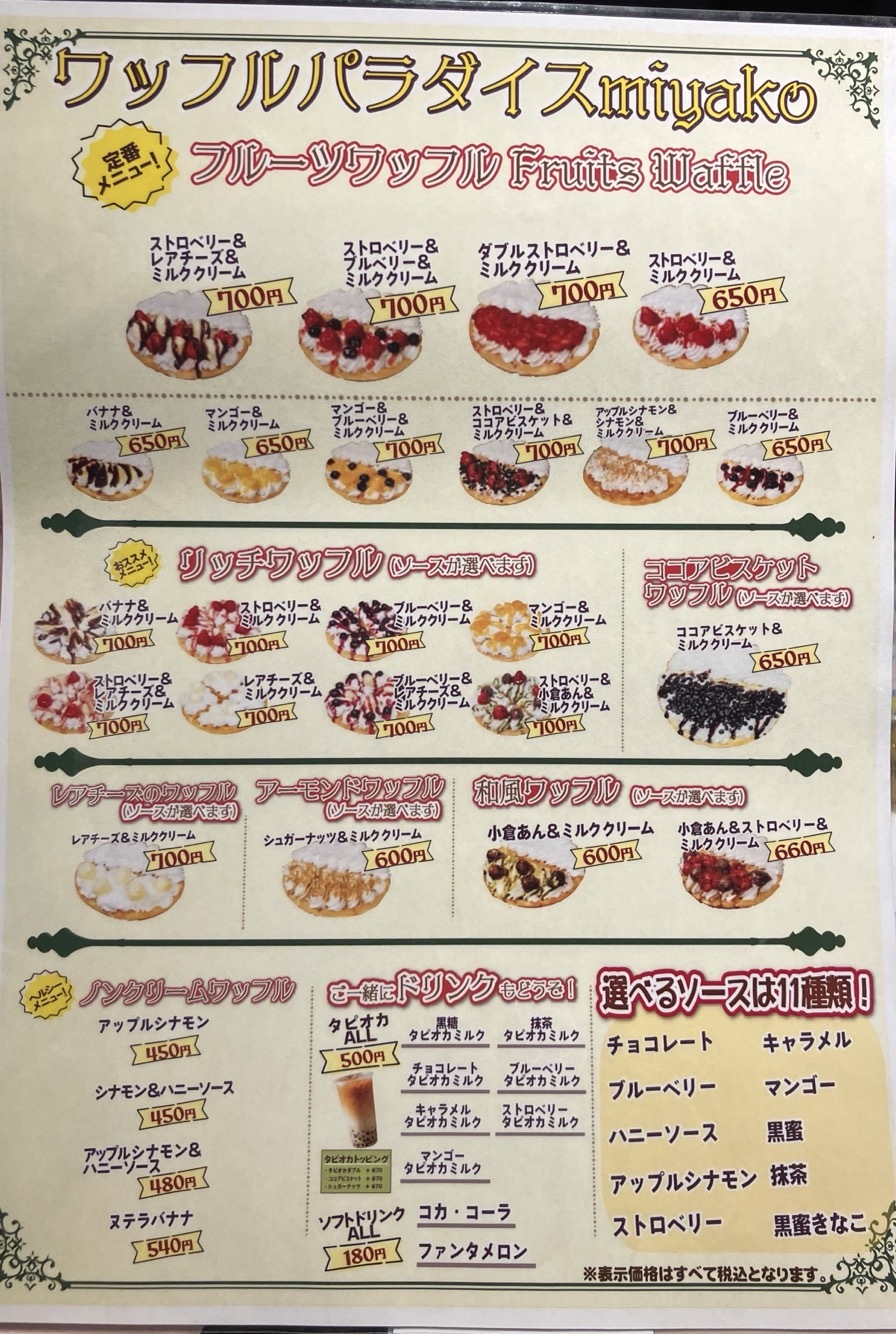 ワッフルパラダイスmiyako
定番
メニュー!
フルーツワッフル Fruits Waffle
ストロベリー&
レアチーズ&
ミルククリーム
700円
ストロベリー&
ブルベリー&
ミルククリーム
700円
ダブルストロベリー&
ミルククリーム
700円
ストロベリー&
ミルククリーム
650円
バナナ&
ミルククリーム
650円
マンゴー&
ミルククリーム
650円
マンゴー&
ブルーベリー&
ミルククリーム
700円
ストロベリー&
ココアビスケット&
ミルククリーム
700円
アップルシナモン&
シナモン&
ミルククリーム
700円
ブルーベリー&
ミルククリーム
650円
おススメ
メニュー!
リッチワッフル (ソースが選べます)
バナナ&
ミルククリーム
700円
ストロベリー&
ミルククリーム
700円
ブルーベリー&
ミルククリーム
700円
マンゴー&
ミルククリーム
700円
ストロベリー&
レアチーズ&
ミルククリーム
700円
レアチーズ&
ミルククリーム
700円
ブルーベリー&
レアチーズ&
ミルククリーム
700円
ストロベリー&
小倉あん&
ミルククリーム
700円
ココアビスケット
ワッフル (ソースが選べます)
ココアビスケット&
ミルククリーム
650円
レアチーズのワッフル
(ソースが選べます)
レアチーズ&ミルククリーム
700円
アーモンドワッフル
(ソースが選べます)
シュガーナッツ&ミルククリーム
600円
和風ワッフル (ソースが選べます)
小倉あん&ミルククリーム
600円
小倉あん&ストロベリー&
ミルククリーム
660円
ヘルシー
メニュー!
ノンクリームワッフル
アップルシナモン
450円
シナモン&ハニーソース
450円
アップルシナモン&
ハニーソース
480円
ヌテラバナナ
540円
ご一緒にドリンクもどうぞ!
タピオカ
ALL
500円
黒糖
タピオカミルク
抹茶
タピオカミルク
チョコレート
タピオカミルク
ブルーベリー
タピオカミルク
キャラメル
タピオカミルク
ストロベリー
タピオカミルク
マンゴー
タピオカミルク
タピオカトッピング
・タピオカダブル +¥70
・ココアビスケット +¥70
・シュガーナッツ +¥70
ソフトドリンク
ALL
180円
コカ・コーラ
ファンタメロン
選べるソースは11種類!
チョコレート
キャラメル
ブルーベリー
マンゴー
ハニーソース
黒蜜
アップルシナモン
抹茶
ストロベリー
黒蜜きなこ
※表示価格はすべて税込となります。